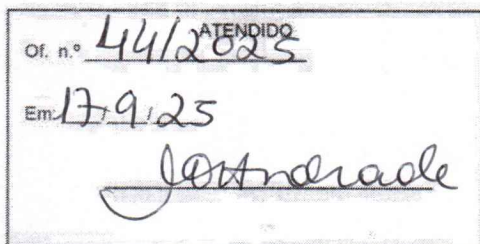 ATENDIDO
Of. n.º 44/2025
Em: 17/9/25